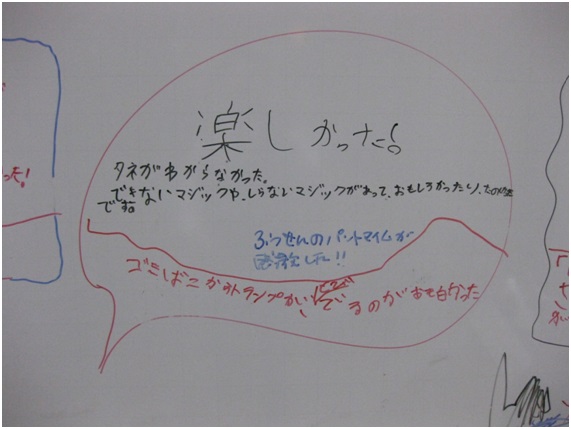 楽しかった!。
タネがわからなかった。
できないマジックや、しらないマジックがあって、おもしろかったし、
ですね
ふうせんのパントマイムが
ゴミばこからトランプが でるのがおも白かった
った!